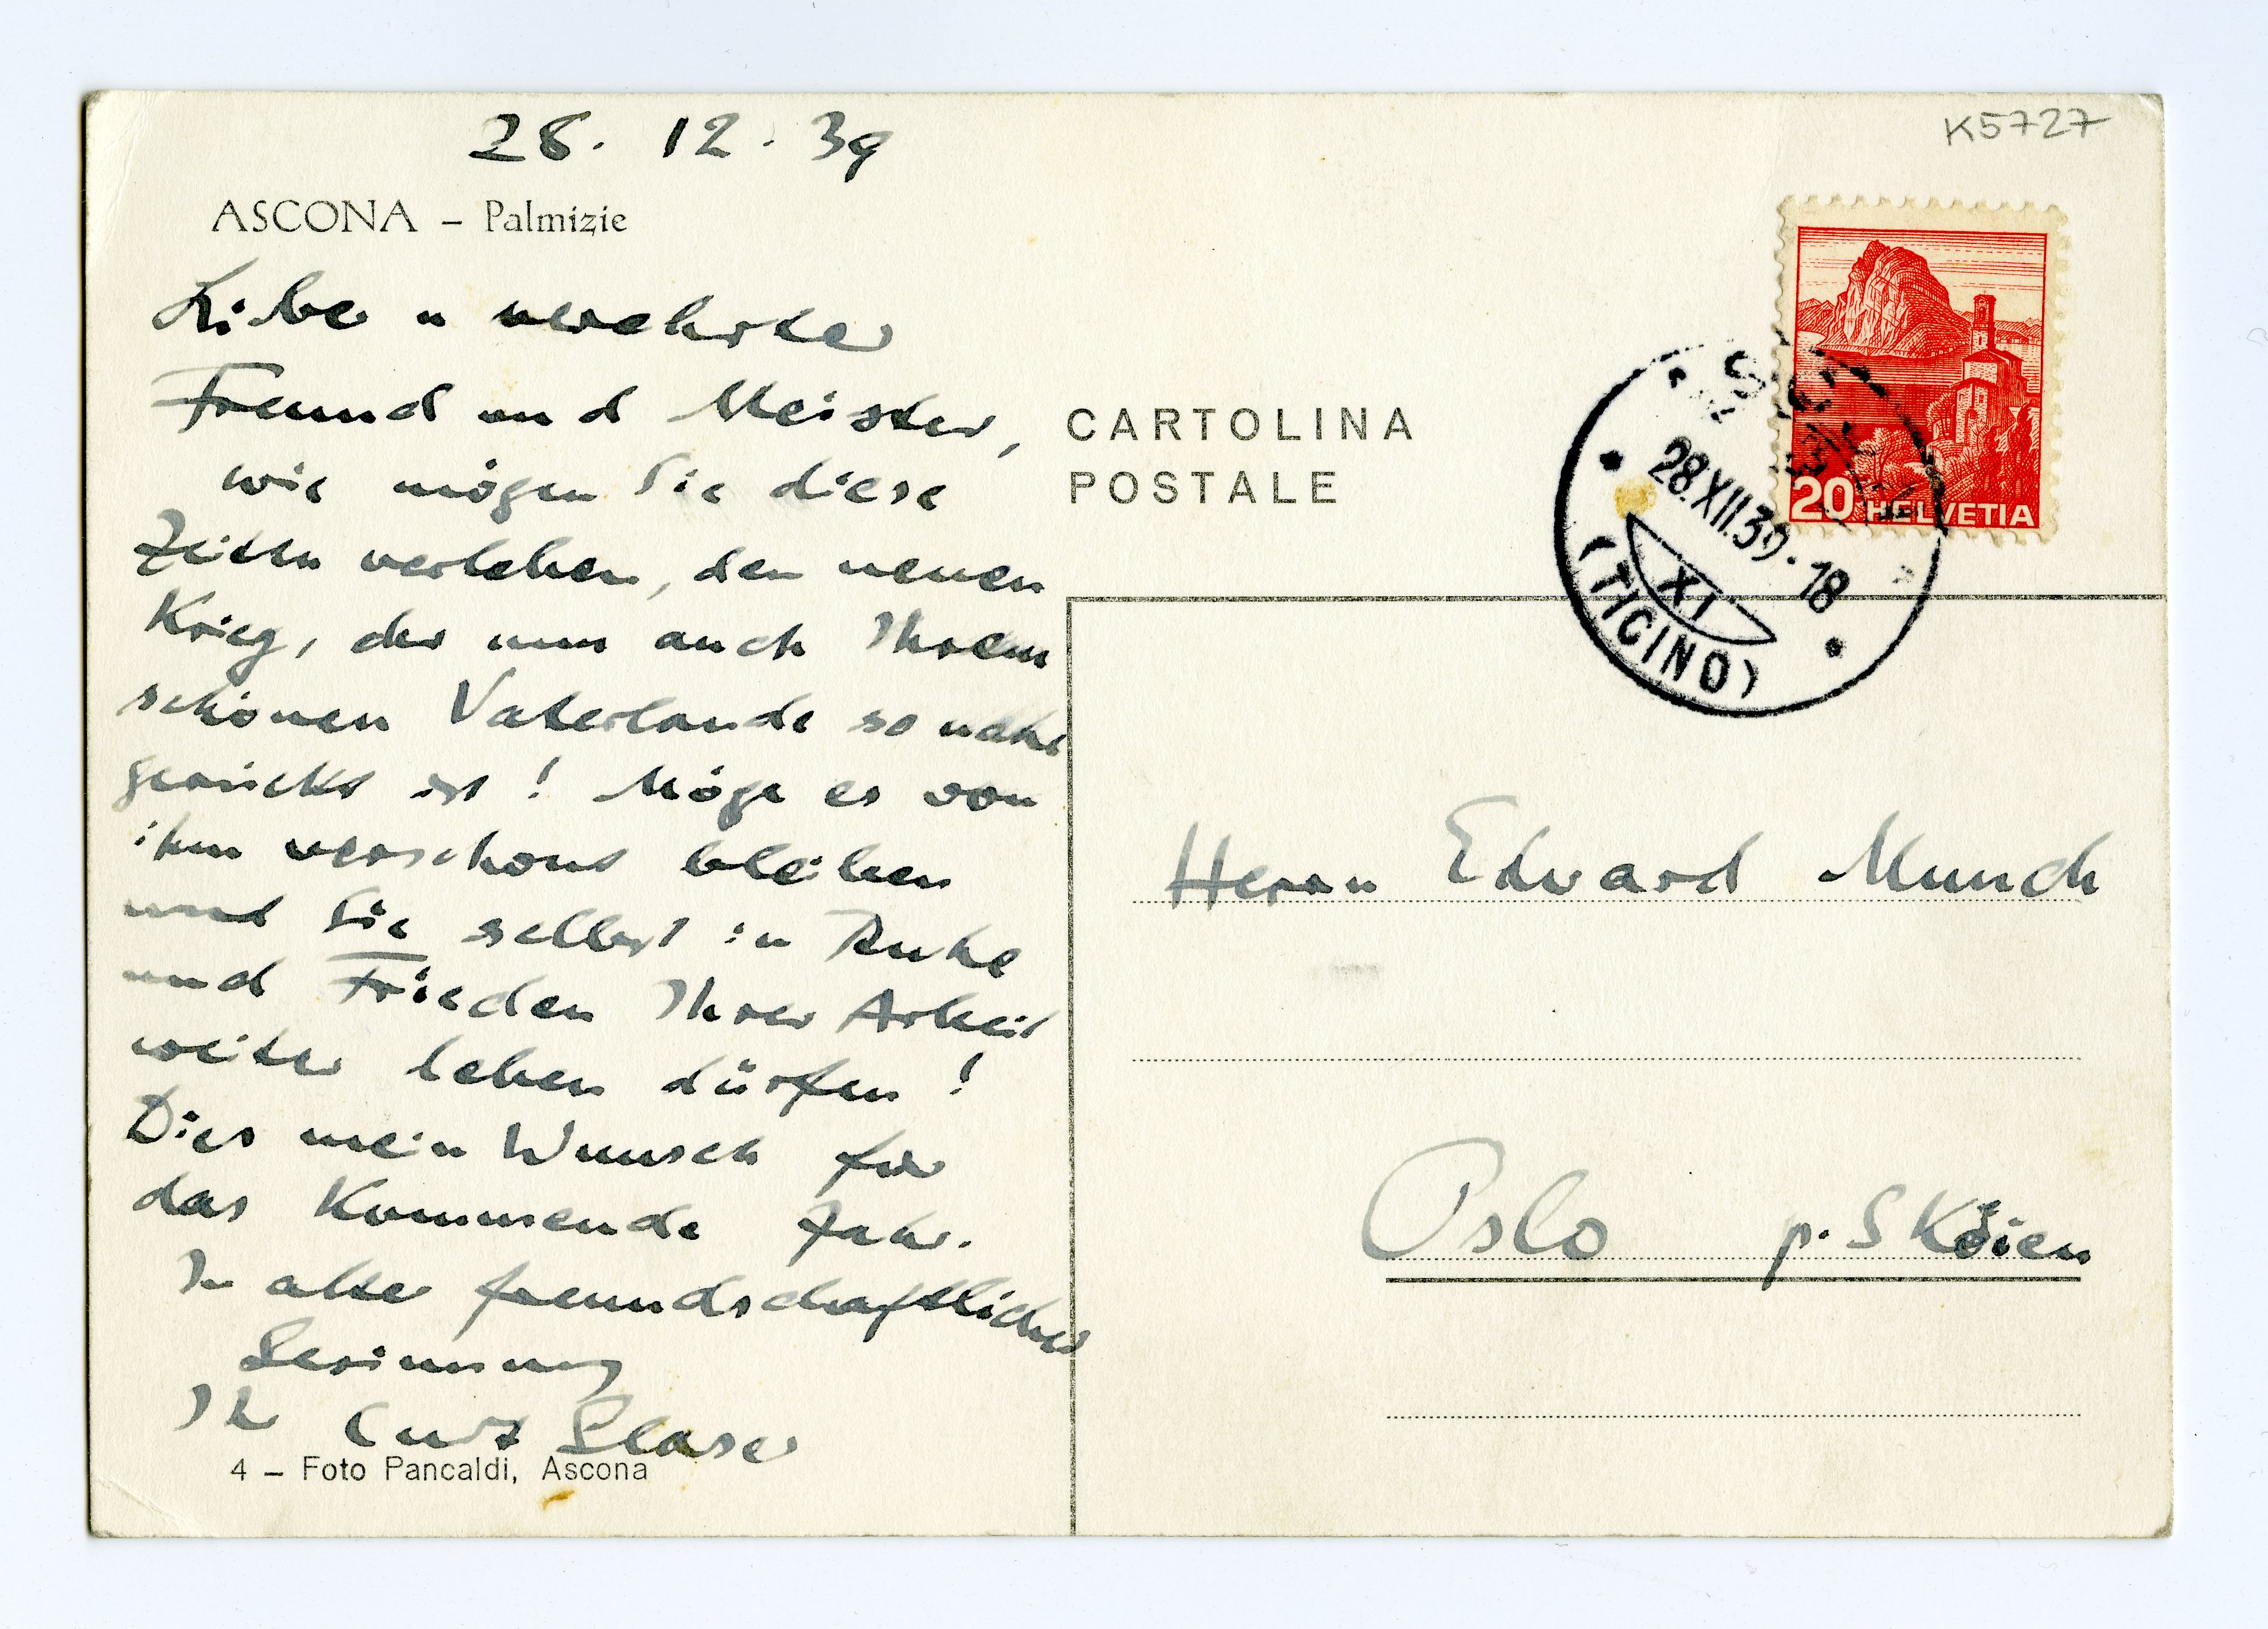 28. 12. 39
K5727
ASCONA – Palmizie
Lieber u verehrter
Freund und Meister,
wie mögen Sie diese
Zeiten verleben, den neuen
Krieg, der nun auch Ihrem
schönen Vaterlande so nahe
gerückt ist! Möge es von
ihm verschont bleiben
und Sie selbst in Ruhe
und Frieden Ihrer Arbeit
weiter leben dürfen!
Dies mein Wunsch für
das Kommende Jahr.
In alter freundschaftlicher
Gesinnung
Ihr Curt Glaser
4 – Foto Pancaldi, Ascona
CARTOLINA
POSTALE
20 HELVETIA
28.XII.39.18
XI
(TICINO)
Herrn Edvard Munch
Oslo p. Sköien